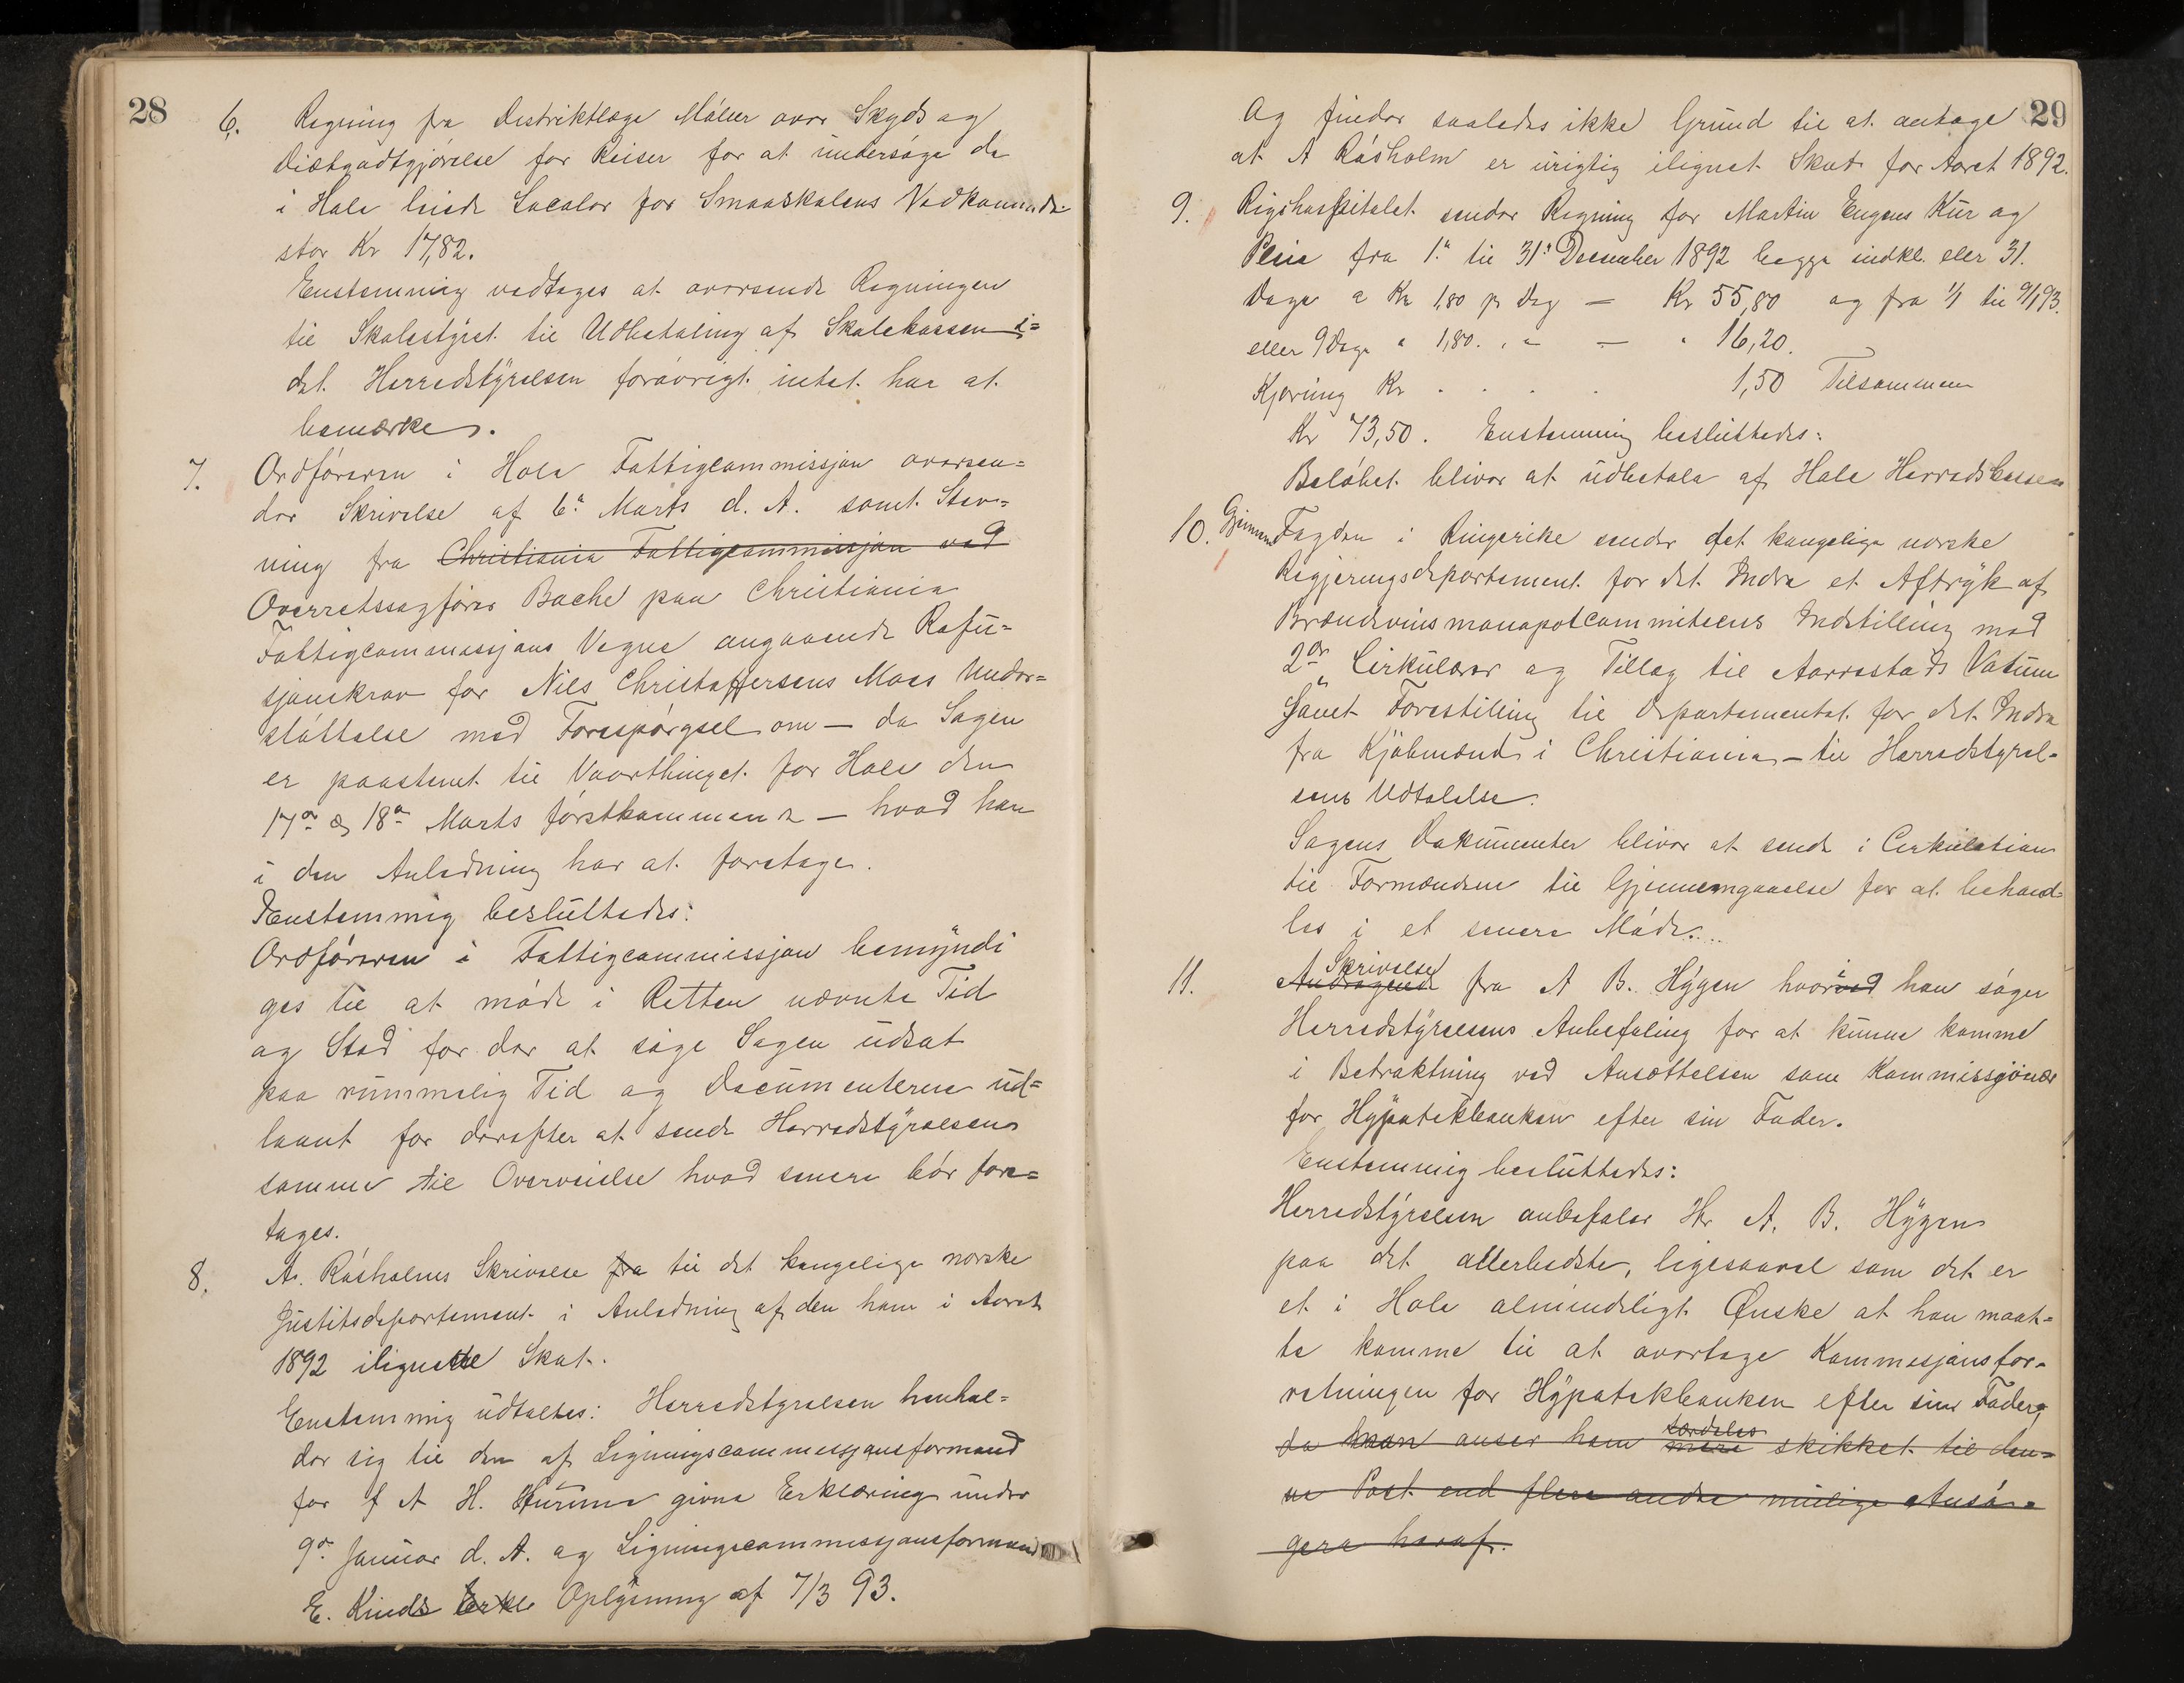 28
6. Regning fra Distriktlæge Möller over Skyds og
Diætgodtgjørelse for Reiser for at undersøge de
i Hole leiede Localer for Smaaskolens Vedkommende
stor Kr 17,82.
Enstemmig vedtages at oversende Regningen
til Skolestyret til Udbetaling af Skolekassen i=
det Herredstyrelsen forøvrigt intet har at
bemærke.
7. Ordføreren i Hole Fattigcommissjon oversen=
der Skrivelse af 6te Marts d. A. samt Stev=
ning fra Christiania Fattigcommissjon ved
Overretssagfører Bache paa Christiania
Fattigcommissjons Vegne angaaende Refu=
sjonskrav for Nils Christoffersens Moes Under=
støttelse med Forespørgsel om — da Sagen
er paastevnt til Vaarthinget for Hole den
17de og 18de Marts førstkommende — hvad han
i den Anledning har at foretage.
Enstemmig besluttedes:
Ordføreren i Fattigcommissjon bemyndi
ges til at møde i Retten nævnte Tid
og Sted for der at søge Sagen udsat
paa rummelig Tid og Documenterne ud=
laant for derefter at sende Herredstyrelsen
samme til Overveielse hvad senere bør fore=
tages.
8. A. Røsholms Skrivelse fra til det kongelige norske
Justitsdepartement i Anledning af den ham i Aaret
1892 ilignette Skat.
Enstemmig udtaltes: Herredstyrelsen henhol=
der sig til den af Ligningscommissjonsformand
for f A H. Hurum givne Erklæring under
9de Januar d. A. og Ligningscommissjonsformand
E. Kinds Erkl Oplysning af 7/3 93.
29
og finder saaledes ikke Grund til at antage
at A Røsholm er urigtig ilignet Skat for Aaret 1892.
9. Rigshospitalet sender Regning for Martin Engens Kur og
Pleie fra 1te til 31te December 1892 begge indkl. eller 31.
Dage a Kr 1,80 pr Dag — Kr 55,80 og fra 1/1 til 9/1 93.
eller 9 Dage a 1,80. " " — " 16,20.
Kjøring Kr . . . . 1,50 Tilsammen
Kr 73,50. Enstemmig besluttedes:
Beløbet bliver at udbetale af Hole Herredskasse
10. Gjennem Fogden i Ringerike sender det kongelige norske
Regjeringsdepartement for det Indre et Aftryk af
Brændevinsmonopolcommiteens Indstilling med
2de Cirkulærer og Tillæg til Aarrestads Votum
samt Forestilling til Departementet for det Indre
fra Kjøbmænd i Christiania — til Herredstyrel-
sens Udtalelse.
Sagens Dokumenter bliver at sende i Cirkulation
til Formændene til Gjennemgaaelse for at behand=
les i et senere Møde.
11. Andragende Skrivelse fra A B. Hygen hvorved i han søger
Herredstyrelsens Anbefaling for at kunne komme
i Betraktning ved Ansættelsen som Kommissjonær
for Hypotekbanken efter sin Fader.
Enstemmig besluttedes:
Herredstyrelsen anbefaler Hr A. B. Hygen
paa det allerbedste, ligesaavel som det er
et i Hole almindeligt Ønske at han maat=
te komme til at overtage Kommisjonsfor-
retningen for Hypotekbanken efter sin Fader,
da man anser ham mere særdeles skikket til den=
ne Post end flere andre mulige Ansø=
gere heraf.